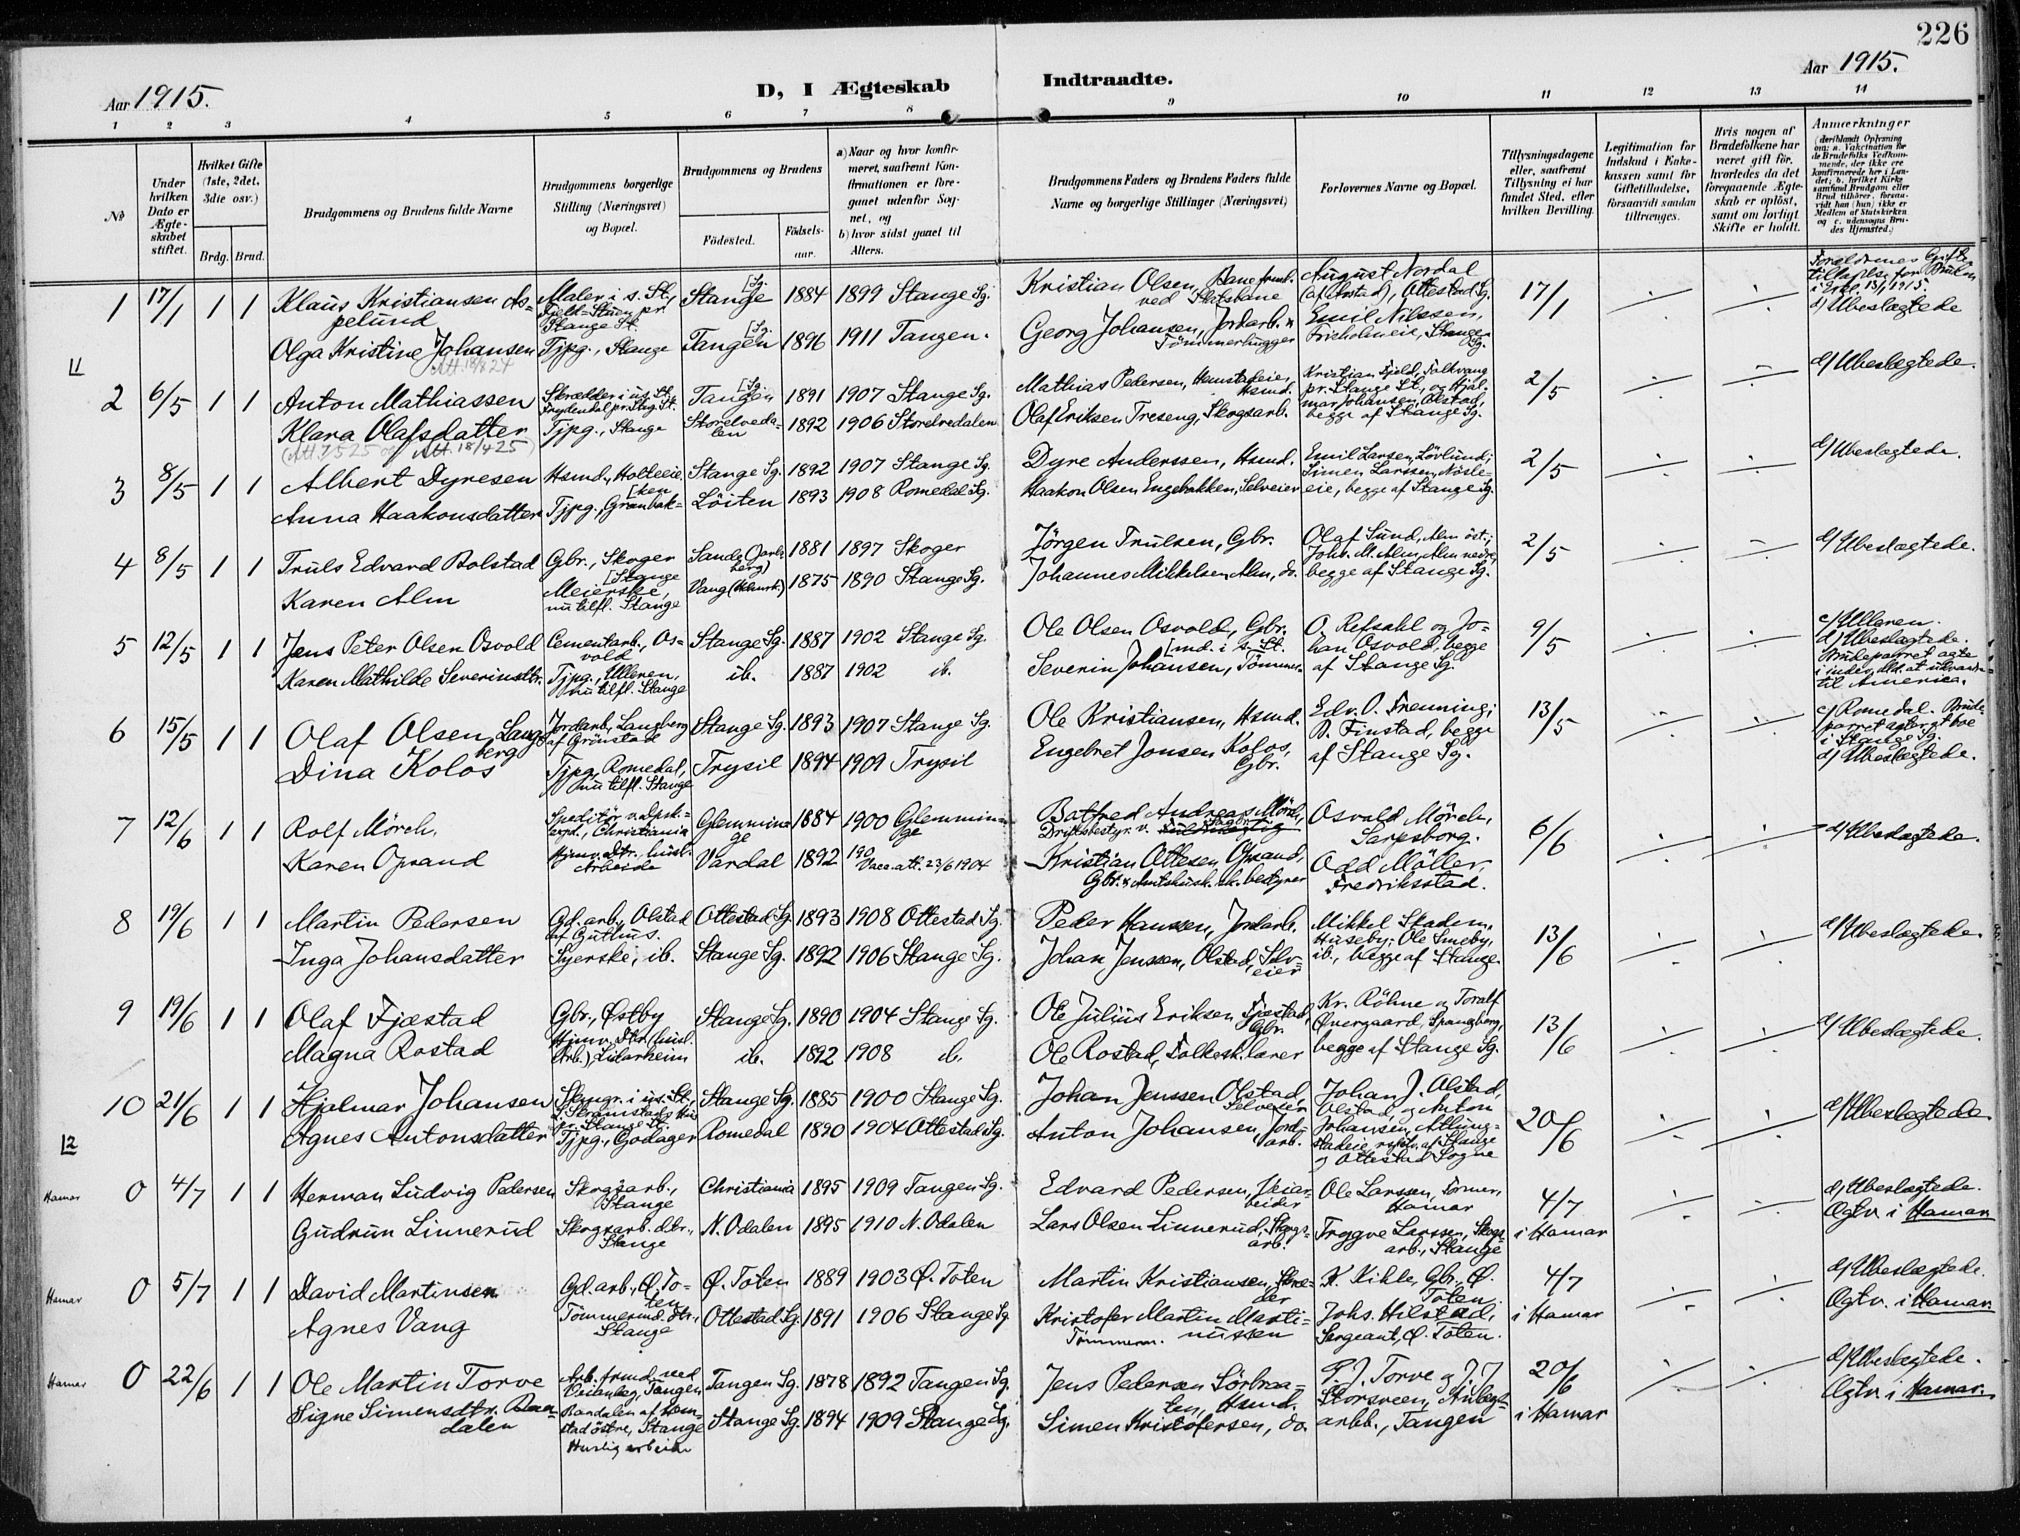 226
Aar 1915.
D, I Ægteskab Indtraadte.
Aar 1915.
1 2 3 4 5 6 7 8 9 10 11 12 13 14
№
Under hvilken Dato er Ægteskabet stiftet.
Hvilket Gifte (1ste, 2det, 3die osv.)
Brdg. Brud.
Brudgommens og Brudens fulde Navne
Brudgommens borgerlige Stilling (Næringsvei) og Bopæl.
Brudgommens og Brudens
Fødested.
Fødselsaar.
a) Naar og hvor konfirmeret, saafremt Konfirmationen er foregaaet udenfor Sognet, og
b) hvor sidst gaaet til Alters.
Brudgommens Faders og Brudens Faders fulde Navne og borgerlige Stillinger (Næringsvei)
Forlovernes Navne og Bopæl.
Tillysningsdagene eller, saafremt Tillysning ei har fundet Sted, efter hvilken Bevilling.
Legitimation for Indskud i Enkekassen samt for Giftetilladelse, forsaavidt saadan tiltrænges.
Hvis nogen af Brudefolkene har været gift før, hvorledes da det foregaaende Ægteskab er opløst, samt om lovligt Skifte er holdt.
Anmærkninger
(deriblandt Oplysning om: a. Vakcination for de Brudefolks Vedkommende, der ikke ere konfirmerede her i Landet; b. hvilket Kirkesamfund Brudgom eller Brud tilhører, forsaavidt han (hun) ikke er Medlem af Statskirken og c. udensogns Brudes Hjemsted.)
1 17/1 1 1 Klaus Kristiansen Aspelund
Maler i s. St.,
Stange Sg. 1884 1899 Stange Sg.
Kristian Olsen, Banearb. ved Statsbane
August Nordal (af Arstad), Ottestad Sg. Emil Nilssen,
17/1
Forældrenes Giftetilladelse for Bruden
d) Ubeslægtede
Olga Kristine Johansen
Tjpg., Stange
Tangen Sg. 1896 1911 Tangen.
Georg Johansen, Jordarb. & Tømmerhugger
2 6/5 1 1 Anton Mathiassen
Skrædder i
Tangen Sg. 1891 1907 Stange Sg.
Mathias Pedersen, Hemstadeie, Hsmd.
Kristian Fjeld, Falkvang pr. Stange St., og Hjalmar Johansen, Olstad, begge af Stange Sg.
2/5
d) Ubeslægtede.
Klara Olafsdatter
Tjpg., Stange
Storelvedalen 1892 1906 Storelvedalen
Olaf Eriksen Treseng, Skogsarb.
Att. 18/4 25
3 8/5 1 1 Albert Dyresen
Hsmd., Holteeie
Stange Sg. 1892 1907 Stange Sg.
Dyre Anderssen, Hsmd.
Emil Larsen, Lövlund; Simen Larssen, Nøsleeie, begge af Stange Sg.
2/5
d) Ubeslægtede.
Anna Haakonsdatter
Tjpg., Granbakken
Löiten 1893 1908 Romedal Sg.
Haakon Olsen Engebakken, Selveier
4 8/5 1 1 Truls Edvard Bolstad
Gbr., Skoger
Sande (Jarlsberg) 1881 1897 Skoger
Jörgen Trulsen, Gbr.
Olaf Sund, Alm öst.; Johs. M. Alm, Alm nedre, begge af Stange Sg.
2/5
d) Ubeslægtede.
Karen Alm
Meierske, nu tilfl. Stange
Vang (Hedmark.) 1875 1890 Stange Sg.
Johannes Mikkelsen Alm, do.
5 12/5 1 1 Jens Peter Olsen Osvold
Cementarb., Osvold
Stange Sg. 1887 1902 Stange Sg.
Ole Olsen Osvold, Gbr.
O. Refsahl og Johan Osvold, begge af Stange Sg.
9/5
c) Ulleren. d) Ubeslægtede. Brudeparret agter i indev. Md. at udvandre til America.
Karen Mathilde Severinsdtr.
Tjpg., Ulleren, nu tilfl. Stange
ib. 1887 1902 ib.
Severin Johansen, Tömmermd. i s. St.
6 15/5 1 1 Olaf Olsen Langberg
Jordarb., Langberg af Grönstad
Stange Sg. 1893 1907 Stange Sg.
Ole Kristiansen, Hsmd.
Edv. O. Frenning; B. Finstad, begge af Stange Sg.
13/5
c) Romedal. Brudeparret agter at boe i Stange Sg. d) Ubeslægtede.
Dina Kolos
Tjpg., Romedal, nu tilfl. Stange
Trysil 1894 1909 Trysil
Engebret Jonsen Kolos, Gbr.
7 12/6 1 1 Rolf Mörch.
Speditör v. Christiania
Glemminge 1884 1900 Glemminge
Botfred Andreas Mörch, Driftsbestyr. v.
Osvald Mörch, Sarpsborg.
6/6
d) Ubeslægtede.
Karen Opsand
Hjmv. Dtr., husl. Arbeide
Vardal 1892 190 Vacc. att. 23/6 1904
Kristian Ottesen Opsand, Gbr. & bestyrer
Odd Möller, Fredriksstad.
8 19/6 1 1 Martin Pedersen
Gd.arb., Olstad af Guthus.
Ottestad Sg. 1893 1908 Ottestad Sg.
Peder Hanssen, Jordarb.
Mikkel Stadem, Huseby; Ole Smeby, ib., begge af Stange
13/6
d) Ubeslægtede.
Inga Johansdatter
Syerske, ib.
Stange Sg. 1892 1906 Stange Sg.
Johan Jenssen, Olstad, Selveier
9 19/6 1 1 Olaf Fjæstad
Gbr., Østby
Stange Sg. 1890 1904 Stange Sg.
Ole Julius Eriksen Fjæstad, Gbr.
Kr. Röhne og Toralf Øvergaard, Spangberg, begge af Stange Sg.
13/6
d) Ubeslægtede.
Magna Rostad
Hjmv. Dtr. (husl. Arb.), Solarheim
ib. 1892 1908 ib.
Ole Rostad, Folkesk.lærer
10 21/6 1 1 Hjalmar Johansen
Stange Sg. 1885 1900 Stange Sg.
Johan Jenssen Olstad, Selveier
Johan J. Olstad, Olstad, og Anton Johansen, Stange og Ottestad Sogne
20/6
d) Ubeslægtede.
Agnes Antonsdatter
Tjpg., Godager
Romedal 1890 1904 Ottestad Sg.
Anton Johansen, Jordarb.
12
Hamar 0 4/7 1 1 Herman Ludvig Pedersen
Skogsarb., Stange
Christiania 1895 1909 Tangen Sg.
Edvard Pedersen, Veiarbeider
Ole Larssen, Hamar
4/7 i Hamar
d) Ubeslægtede. Ægtv. i Hamar
Gudrun Linnerud
Skogsarb. dtr., Stange
N. Odalen 1895 1910 N. Odalen
Lars Olsen Linnerud, Skogsarb.
Trygve Larssen, Skogsarb., Stange
Hamar 0 5/7 1 1 David Martinsen
Gd.arb., Ø. Toten
Ø. Toten 1889 1903 Ø. Toten
Martin Kristiansen, Skræder
K. Kihle, Gbr., Ø. Toten.
4/7 i Hamar
d) Ubeslægtede. Ægtv. i Hamar
Agnes Vang
Tömmermd. dtr., Stange
Ottestad Sg. 1891 1906 Stange Sg.
Kristofer Martin Martinussen Tömmerm.
Johs. Hilstad, Sergeant, Ø. Toten.
Hamar 0 22/6 1 1 Ole Martin Torve
Arb. formd. ved Veianlæg, Tangen
Tangen Sg. 1878 1892 Tangen Sg.
Jens Pedersen Sörbraaten, Hsmd.
P. J. Torve og J. J. Storsveen, Anlægsarbb., Tangen
20/6 i Hamar
d) Ubeslægtede. Ægtv. i Hamar.
Signe Simensdtr. Baadalen
Stange Huslig arbeide
Stange Sg. 1894 1909 Stange Sg.
Simen Kristofersen, do.